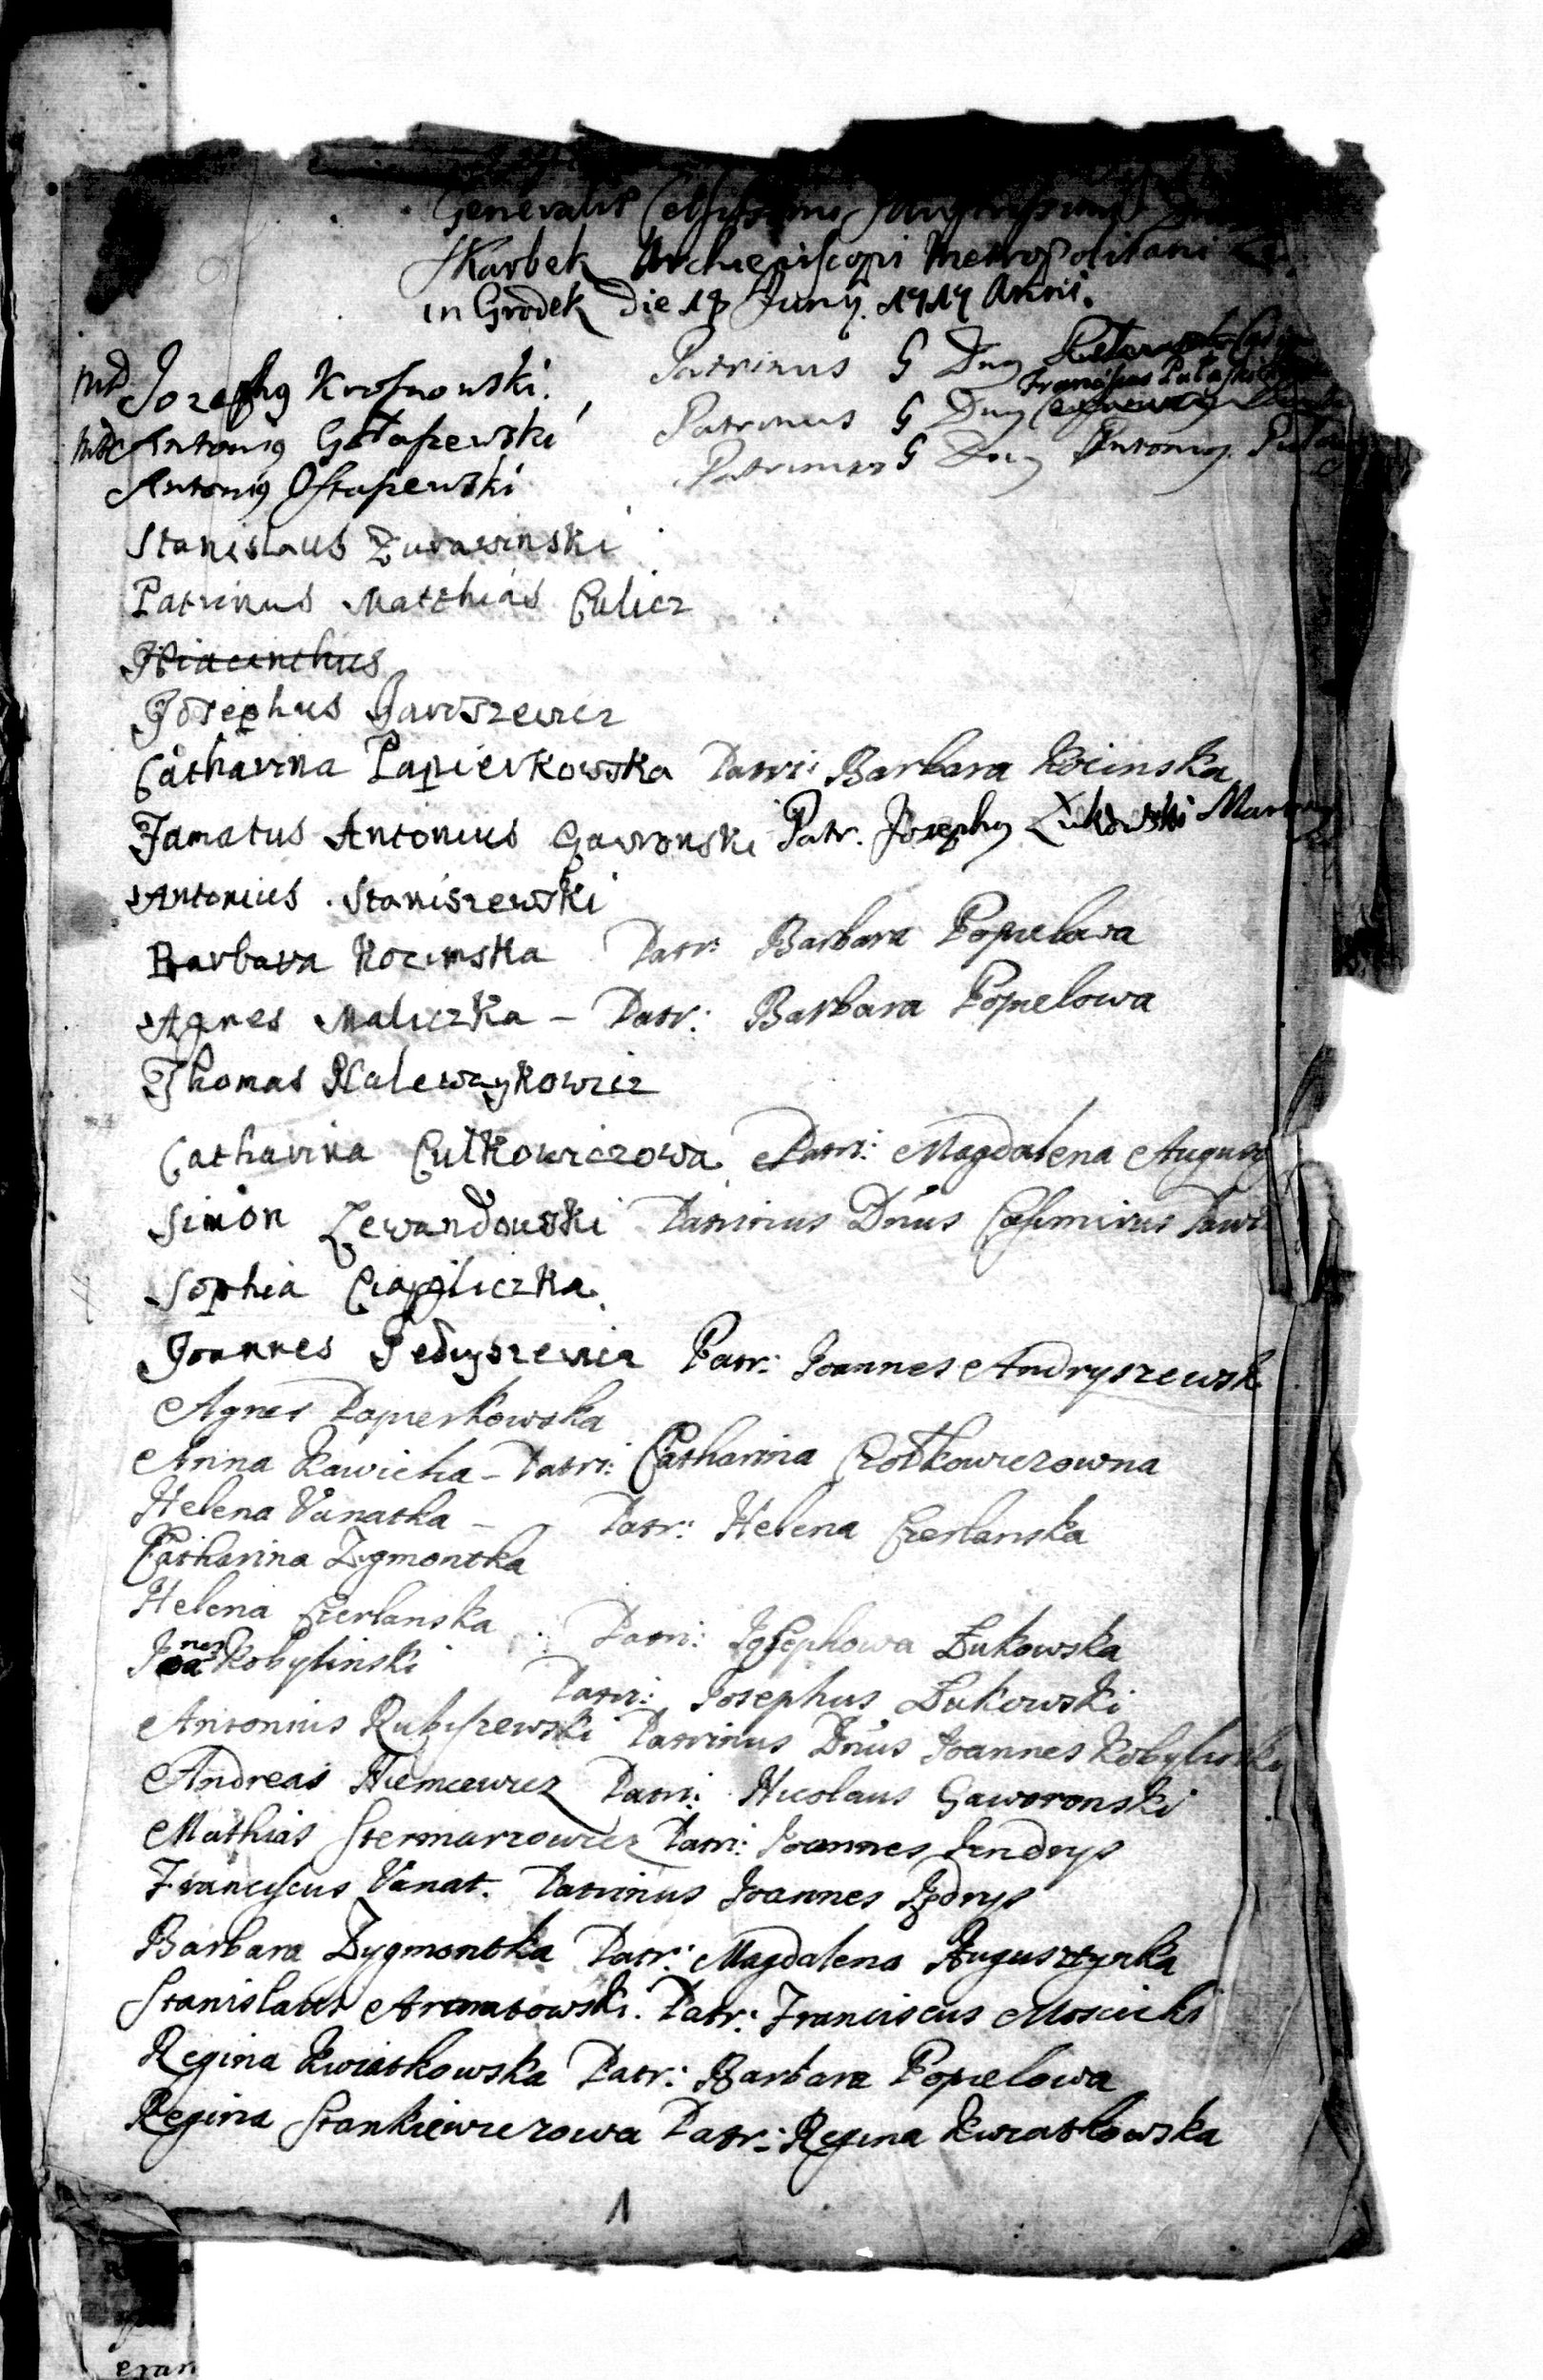 Generalis Celsissimi
Skarbek Archiepiscopi Metropolitani
in Grodek Die 18 Junij. 1717 Anni.
Md Jozephg Krosnowski. Patrinus G Dng
Franciscus Pułaski
Mdc Antonig Gołaszewski Patrinus G Dng
Antonig Ostaszewski Patrinus G Dng Antonig.
Stanislaus Zurawinski
Patrinus Matthias Culicz
Hiacinthus
Josephus Jaroszewicz
Catharina Papierkowska Patri: Barbara Kocinska
Famatus Antonius Gawronski Patr. Josephg Łukowski
Antonius Staniszewski
Barbara Kocinska Patr: Barbara Popielowa
Agnes Maliczka – Patr: Barbara Popielowa
Thomas Malewaykowicz
Catharina Culkowiczowa Patri: Magdalena
Simon Lewandowski Patrinus Dnus Casimirus
Sophia Ciapliczka
Joannes Fedyszewicz Patr: Joannes Andryszewsk
Agnes Papierkowska
Anna Kawicka – Patri: Catharina Czołkowiczowna
Helena Vanatka – Patr: Helena Czerlanska
Catharina Zygmontka
Helena Czerlanska Patri: Josephowa Łukowska
Joannes Kobylinski Patri: Josephus Łukowski
Antonius Rubiszewski Patrinus Dnus Joannes Kobylinski
Andreas Niemcewicz Patri: Nicolaus Gaworonski
Mathias Stermarzowicz Patri: Joannes Jendrys
Franciscus Vanat. Patrinus Joannes Jędrys
Barbara Zygmontka Patr: Magdalena Augusztynka
Stanislaus Aromatowski. Patr: Franciscus Moscicki
Regina Kwiatkowska Patr: Barbara Popielowa
Regina Stankiewiczowa Patr: Regina Kwiatkowska
1